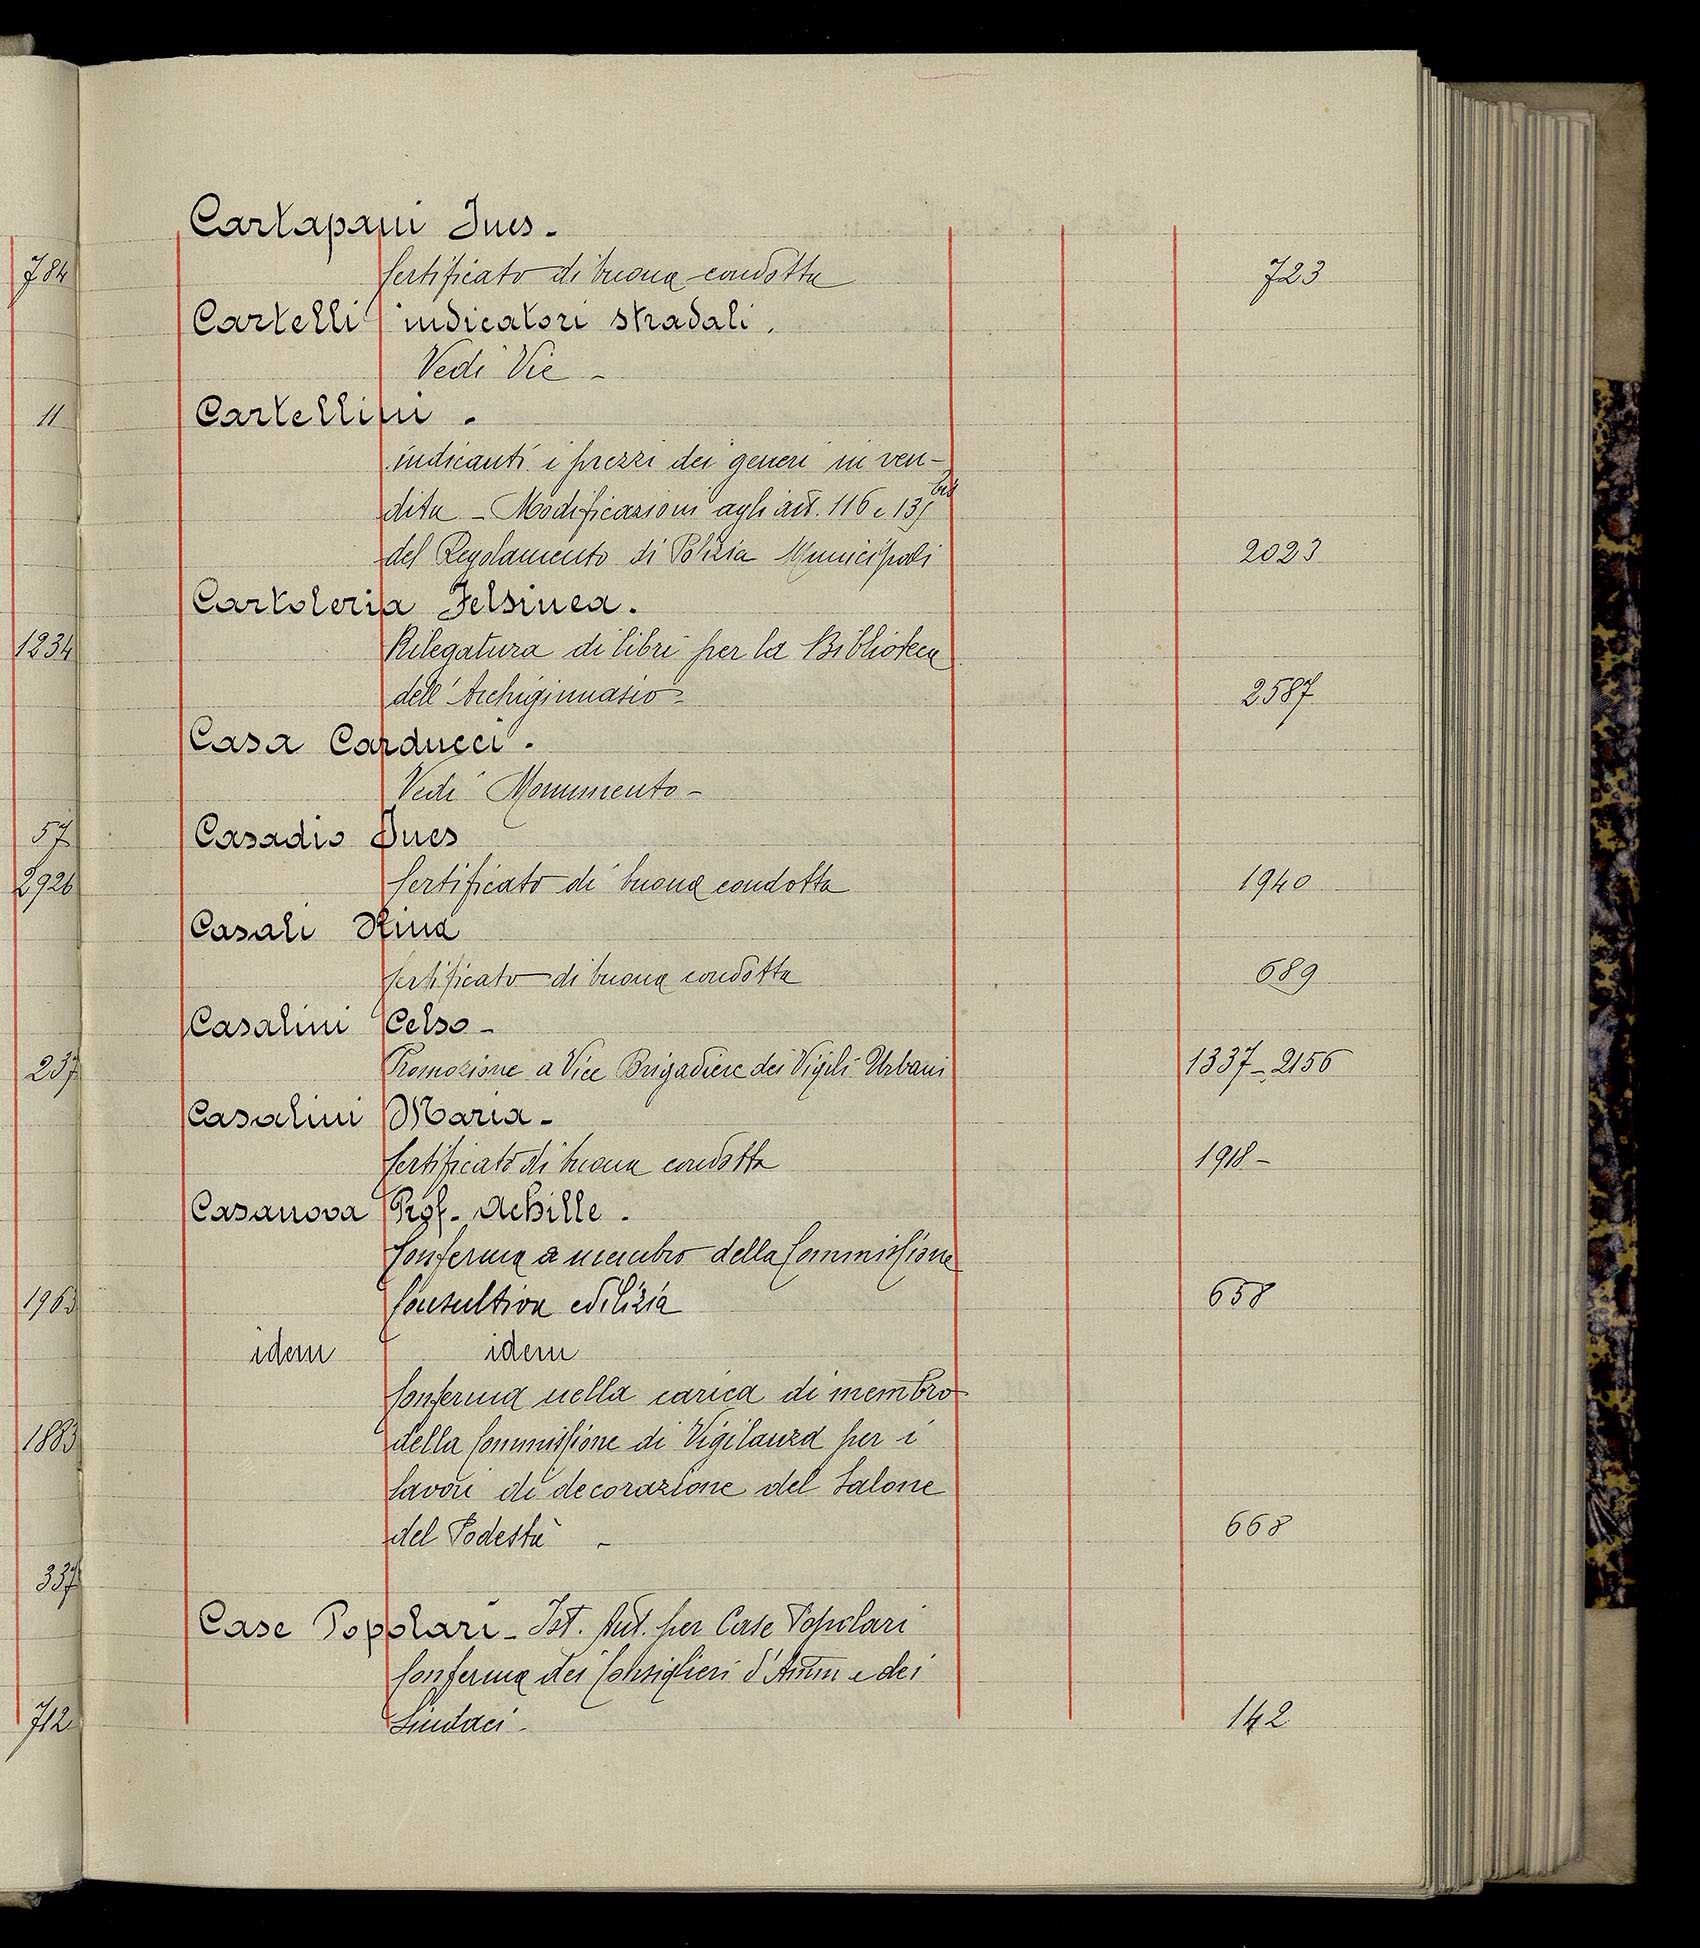 784
11
1234
57
2926
237
1963
1883
337
712
Cartapani Ines -
Certificato di buona condotta 723
Cartelli indicatori stradali.
Vedi Vie -
Cartellini .
indicanti i prezzi dei generi in ven-
dita - Modificazioni agli art. 116 e 131 bis
del Regolamento di Polizia Municipali 2023
Cartoleria Felsinea.
Rilegatura di libri per la Biblioteca
dell'Archiginnasio - 2587
Casa Carducci .
Vedi Monumento -
Casadio Ines
Certificato di buona condotta 1940
Casali Rina
Certificato di buona condotta 689
Casalini Celso -
Promozione a Vice Brigadiere dei Vigili Urbani 1337 - 2156
Casalini Maria -
Certificato di buona condotta 1918 -
Casanova Prof. Achille .
Conferma a membro della Commissione
Consultiva edilizia 658
idem idem
Conferma nella carica di membro
della Commissione di Vigilanza per i
lavori di decorazione del Salone
del Podestà - 668
Case Popolari - Ist. Aut. per Case Popolari
Conferma dei Consiglieri d'Amm e dei
Sindaci - 142